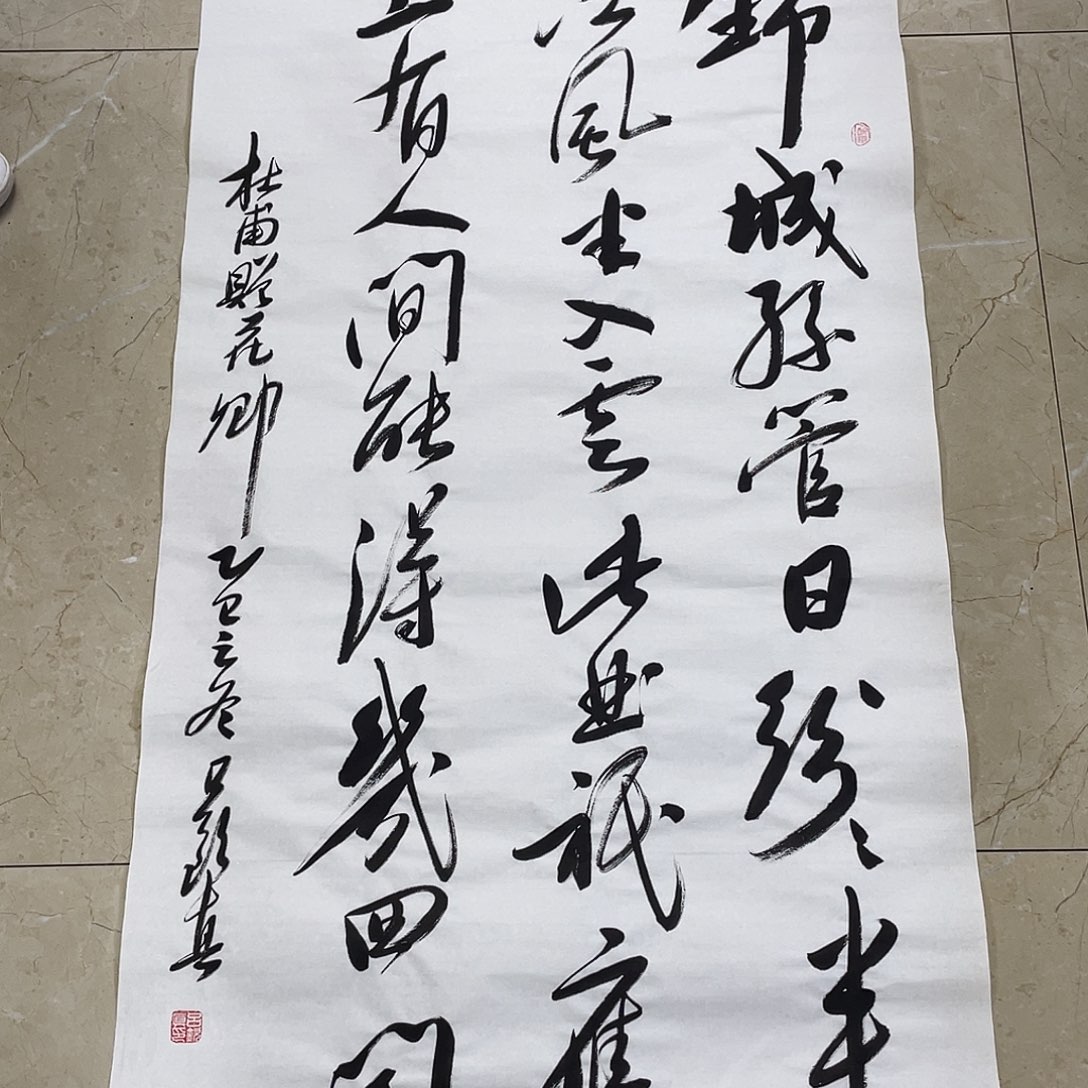 錦城絲管日紛紛半
江風半入雲此曲祇應
上有人間能得幾回聞
杜甫贈花卿 乙巳之冬 真